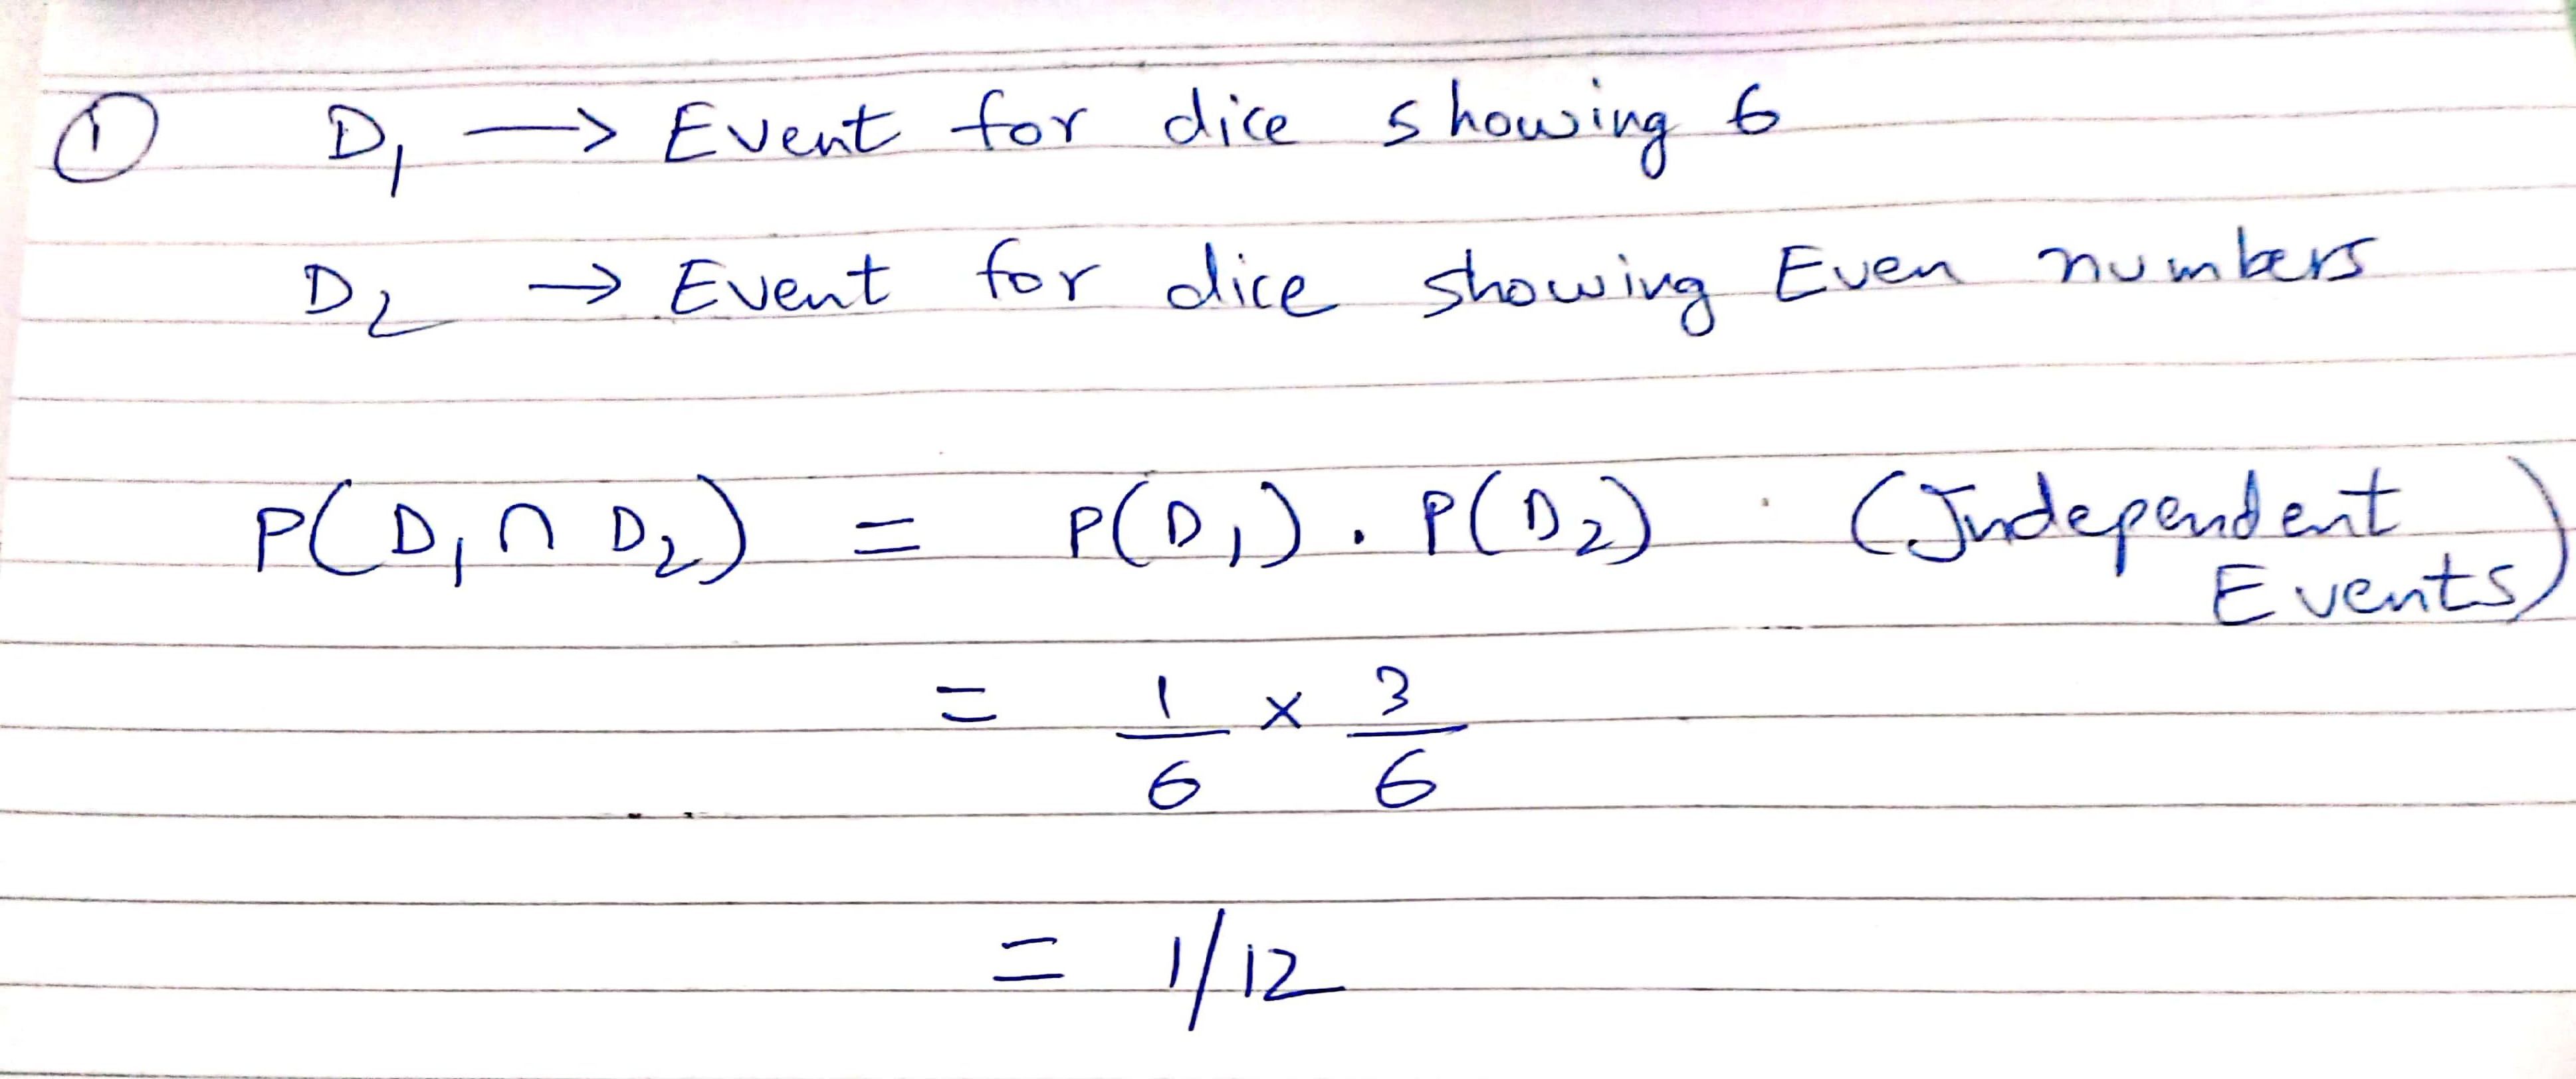 ① D₁ → Event for dice showing 6
D₂ → Event for dice showing Even numbers
P(D₁ ∩ D₂) = P(D₁) . P(D₂) (Independent
Events)
= 1/6 × 3/6
= 1/12